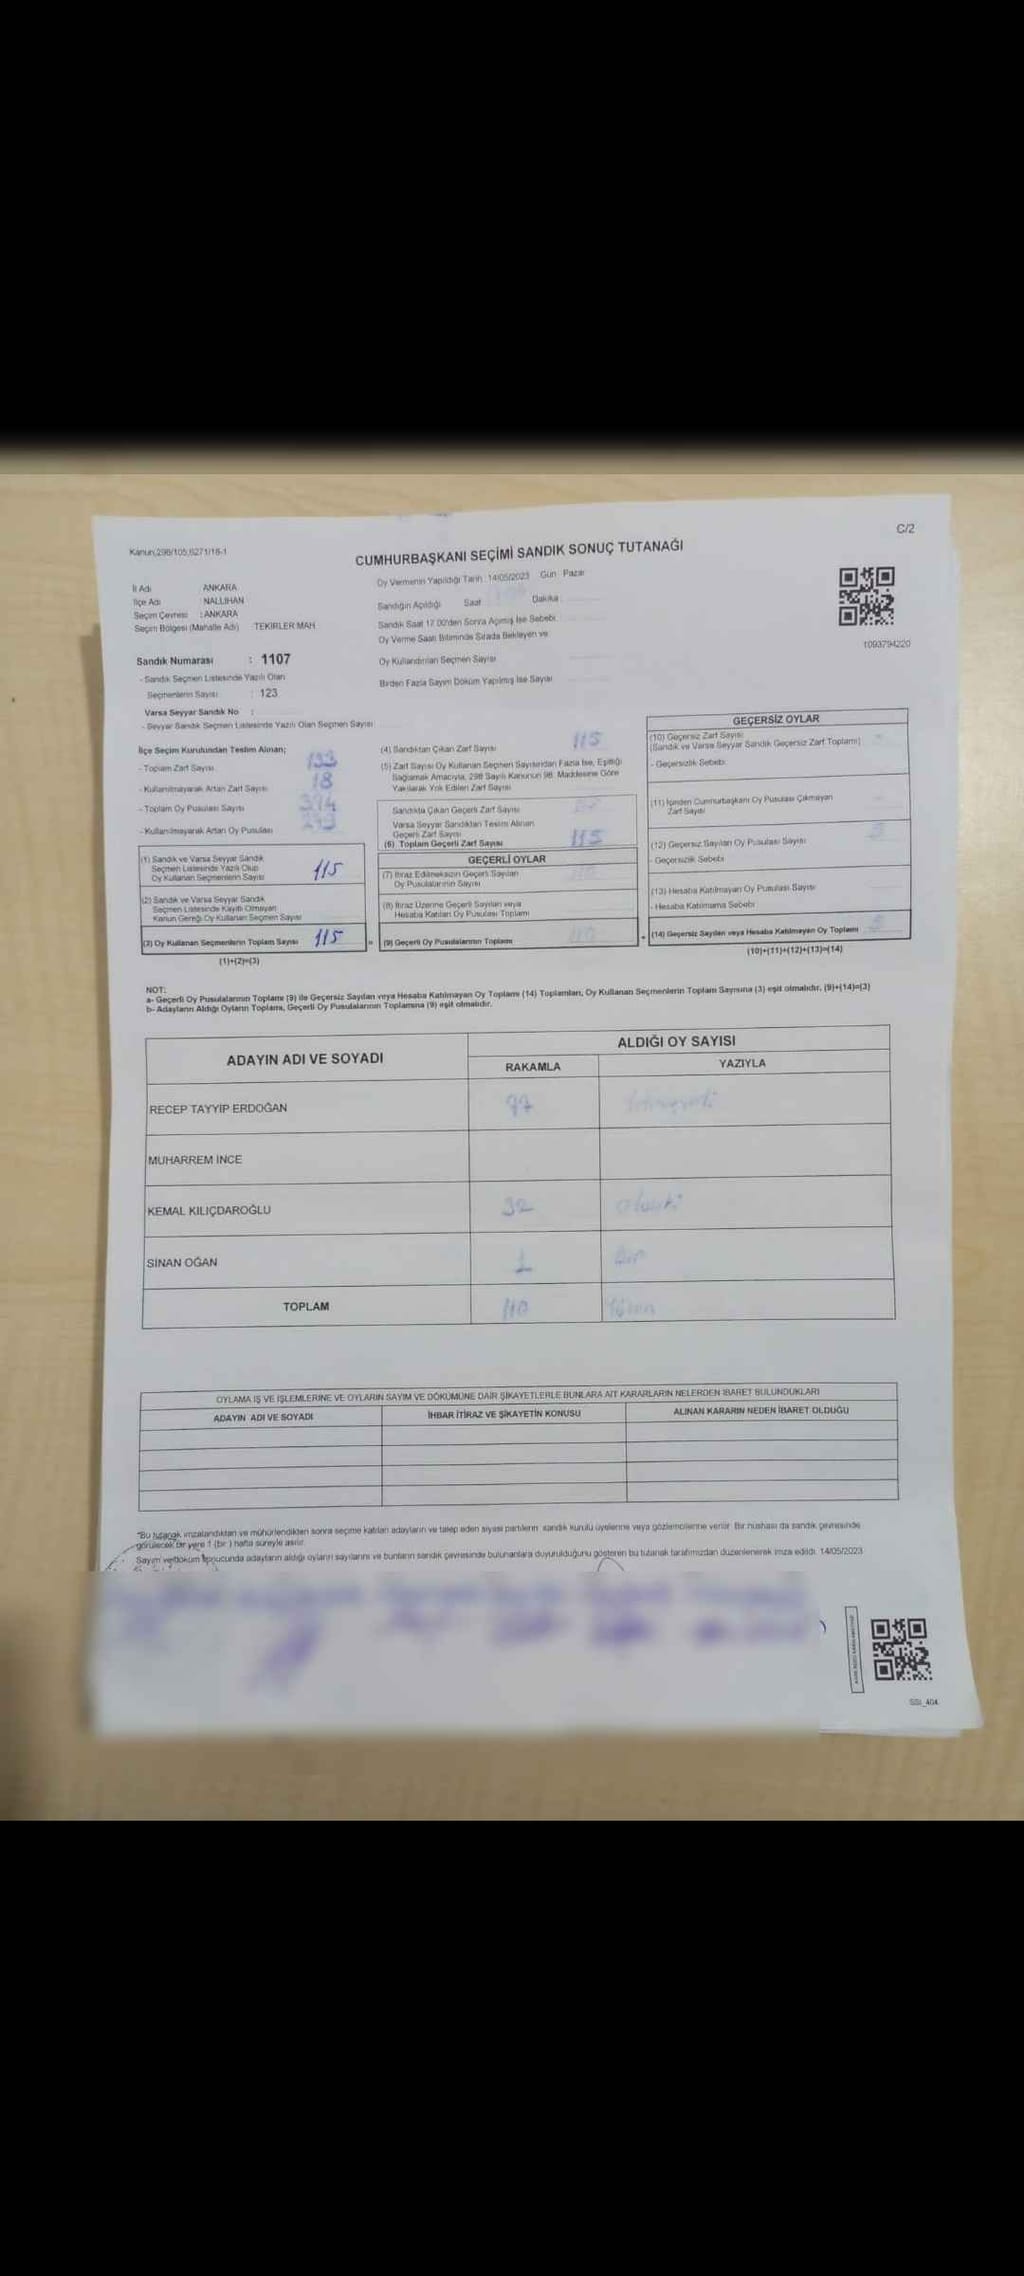 C/2
Kanun,298/105,6271/18-1
CUMHURBAŞKANI SEÇİMİ SANDIK SONUÇ TUTANAĞI
İl Adı ANKARA
İlçe Adı : NALLIHAN
Seçim Çevresi : ANKARA
Seçim Bölgesi (Mahalle Adı) TEKIRLER MAH
Sandık Numarası : 1107
- Sandık Seçmen Listesinde Yazılı Olan
Seçmenlerin Sayısı : 123
Varsa Seyyar Sandık No :
- Seyyar Sandık Seçmen Listesinde Yazılı Olan Seçmen Sayısı
Oy Vermenin Yapıldığı Tarih : 14/05/2023 Gün : Pazar
Sandığın Açıldığı Saat Dakika :
Sandık Saat 17.00'den Sonra Açılmış İse Sebebi :
Oy Verme Saati Bitiminde Sırada Bekleyen ve
Oy Kullandırılan Seçmen Sayısı
Birden Fazla Sayım Döküm Yapılmış İse Sayısı
1093794220
İlçe Seçim Kurulundan Teslim Alınan;
- Toplam Zarf Sayısı 133
- Kullanılmayarak Artan Zarf Sayısı 18
- Toplam Oy Pusulası Sayısı
- Kullanılmayarak Artan Oy Pusulası
(1) Sandık ve Varsa Seyyar Sandık
Seçmen Listesinde Yazılı Olup
Oy Kullanan Seçmenlerin Sayısı 115
(2) Sandık ve Varsa Seyyar Sandık
Seçmen Listesinde Kayıtlı Olmayan
Kanun Gereği Oy Kullanan Seçmen Sayısı
(3) Oy Kullanan Seçmenlerin Toplam Sayısı 115
(1)+(2)=(3)
(4) Sandıktan Çıkan Zarf Sayısı 115
(5) Zarf Sayısı Oy Kullanan Seçmen Sayısından Fazla İse, Eşitliği
Sağlamak Amacıyla, 298 Sayılı Kanunun 98. Maddesine Göre
Yakılarak Yok Edilen Zarf Sayısı
Sandıkta Çıkan Geçerli Zarf Sayısı
Varsa Seyyar Sandıktan Teslim Alınan
Geçerli Zarf Sayısı
(6) Toplam Geçerli Zarf Sayısı 115
GEÇERLİ OYLAR
(7) İtiraz Edilmeksizin Geçerli Sayılan
Oy Pusulalarının Sayısı 110
(8) İtiraz Üzerine Geçerli Sayılan veya
Hesaba Katılan Oy Pusulası Toplamı
= (9) Geçerli Oy Pusulalarının Toplamı 110
GEÇERSİZ OYLAR
(10) Geçersiz Zarf Sayısı
(Sandık ve Varsa Seyyar Sandık Geçersiz Zarf Toplamı)
- Geçersizlik Sebebi
(11) İçinden Cumhurbaşkanı Oy Pusulası Çıkmayan
Zarf Sayısı
(12) Geçersiz Sayılan Oy Pusulası Sayısı 5
- Geçersizlik Sebebi
(13) Hesaba Katılmayan Oy Pusulası Sayısı
- Hesaba Katılmama Sebebi
+ (14) Geçersiz Sayılan veya Hesaba Katılmayan Oy Toplamı 5
(10)+(11)+(12)+(13)=(14)
NOT:
a- Geçerli Oy Pusulalarının Toplamı (9) ile Geçersiz Sayılan veya Hesaba Katılmayan Oy Toplamı (14) Toplamları, Oy Kullanan Seçmenlerin Toplam Sayısına (3) eşit olmalıdır. (9)+(14)=(3)
b- Adayların Aldığı Oyların Toplamı, Geçerli Oy Pusulalarının Toplamına (9) eşit olmalıdır.
ADAYIN ADI VE SOYADI ALDIĞI OY SAYISI
RAKAMLA YAZIYLA
RECEP TAYYİP ERDOĞAN 77
MUHARREM İNCE
KEMAL KILIÇDAROĞLU 32 otuziki
SİNAN OĞAN 1 Bir
TOPLAM 110 Yüzon
OYLAMA İŞ VE İŞLEMLERİNE VE OYLARIN SAYIM VE DÖKÜMÜNE DAİR ŞİKAYETLERLE BUNLARA AİT KARARLARIN NELERDEN İBARET BULUNDUKLARI
ADAYIN ADI VE SOYADI İHBAR İTİRAZ VE ŞİKAYETİN KONUSU ALINAN KARARIN NEDEN İBARET OLDUĞU
"Bu tutanak imzalandıktan ve mühürlendikten sonra seçime katılan adayların ve talep eden siyasi partilerin sandık kurulu üyelerine veya gözlemcilerine verilir. Bir nüshası da sandık çevresinde
görülecek bir yere 1 (bir ) hafta süreyle asılır.
Sayım ve döküm sonucunda adayların aldığı oyların sayılarını ve bunların sandık çevresinde bulunanlara duyurulduğunu gösteren bu tutanak tarafımızdan düzenlenerek imza edildi. 14/05/2023
SSI_404